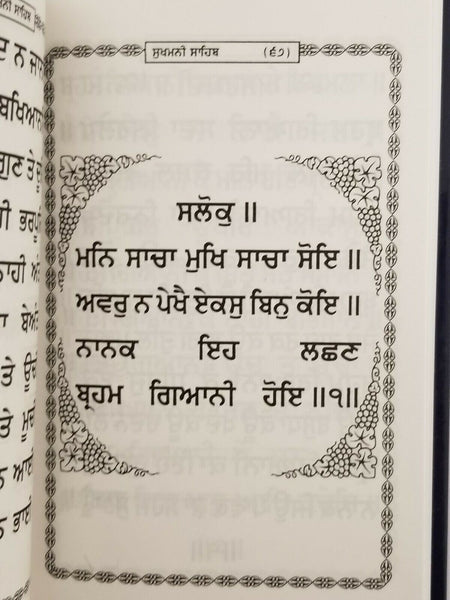 ਸੁਖਮਨੀ ਸਾਹਿਬ (੬੭)
ਸਲੋਕੁ ॥
ਮਨਿ ਸਾਚਾ ਮੁਖਿ ਸਾਚਾ ਸੋਇ ॥
ਅਵਰੁ ਨ ਪੇਖੈ ਏਕਸੁ ਬਿਨੁ ਕੋਇ ॥
ਨਾਨਕ ਇਹ ਲਛਣ
ਬ੍ਰਹਮ ਗਿਆਨੀ ਹੋਇ ॥੧॥